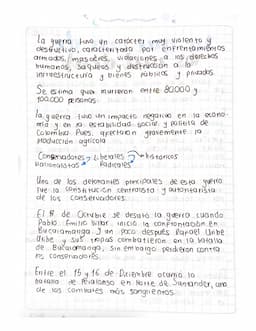 La guerra tuvo un carácter muy violento y
destructivo, caracterizada por enfrentamientos
armados, masacres, violaciones a los derechos
humanos, saqueos y destrucción a la
infraestructura y bienes públicos y privados
Se estima que murieron entre 80.000 y
100.000 personas.
La guerra tuvo un impacto negativo en la econo-
mía y en la estabilidad social y política de
Colombia. Pues, afectaron gravemente la
producción agrícola
Conservadores Liberales históricos
Nacionalistas Radicales
Uno de los detonantes principales de esta guerra
fue la constitución centralista y autoritarista
de los conservadores.
El 18 de Octubre se desató la guerra cuando
Pablo Emilio Villar inició la confrontación en
Bucaramanga y un poco después Rafael Uribe
Uribe y sus tropas combatieron en la batalla
de Bucaramanga, sin embargo perdieron contra
los conservadores.
Entre el 15 y 16 de Diciembre ocurrió la
batalla de Peralonso en Norte de Santander, uno
de los combates más sangrientos.